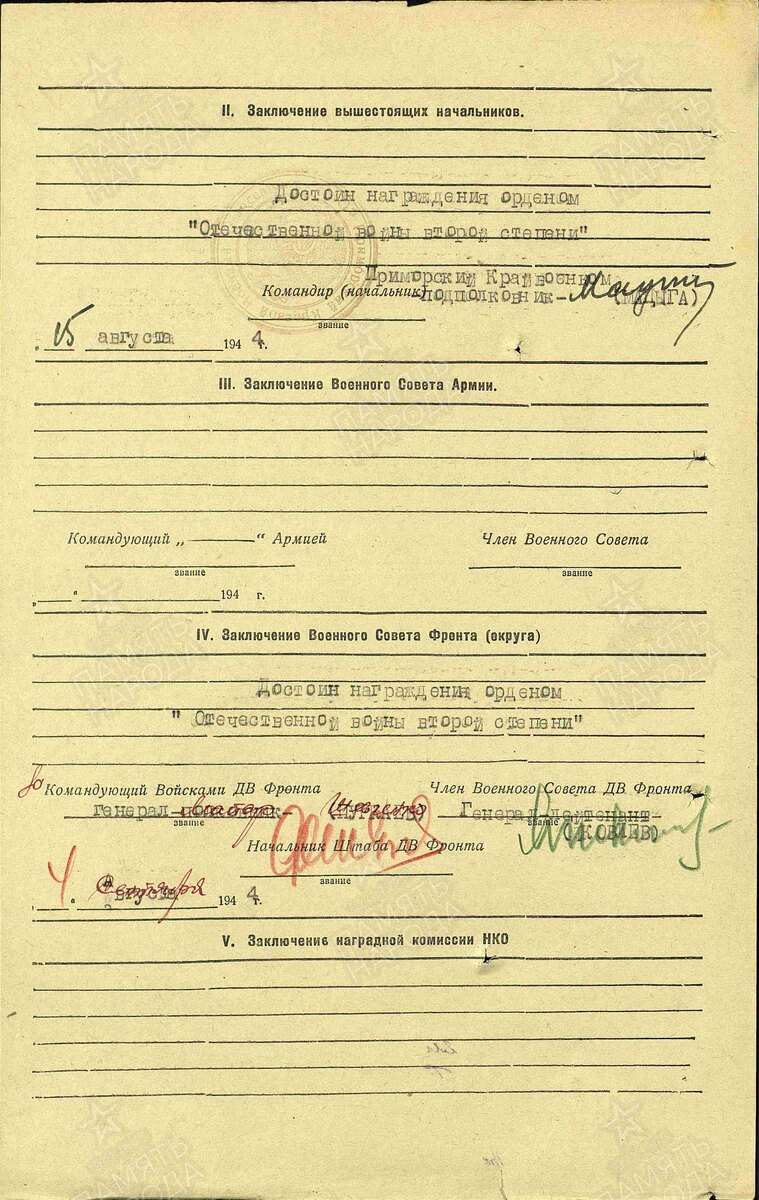 II. Заключение вышестоящих начальников.
Достоин награждения орденом
"Отечественной войны второй степени"
Приморский Крайвоенком
Командир (начальник)
подполковник-
звание
„15 августа 1944 г.
III. Заключение Военного Совета Армии.
Командующий „ “ Армией Член Военного Совета
звание звание
„ “ 194 г.
IV. Заключение Военного Совета Фронта (округа)
Достоин награждения орденом
" Отечественной войны второй степени"
Командующий Войсками ДВ Фронта Член Военного Совета ДВ Фронта
генерал- Генерал-лейтенант
звание звание
Начальник Штаба ДВ Фронта
звание
„4 “ Сентября 1944 г.
V. Заключение наградной комиссии НКО
ПАМЯТЬ НАРОДА